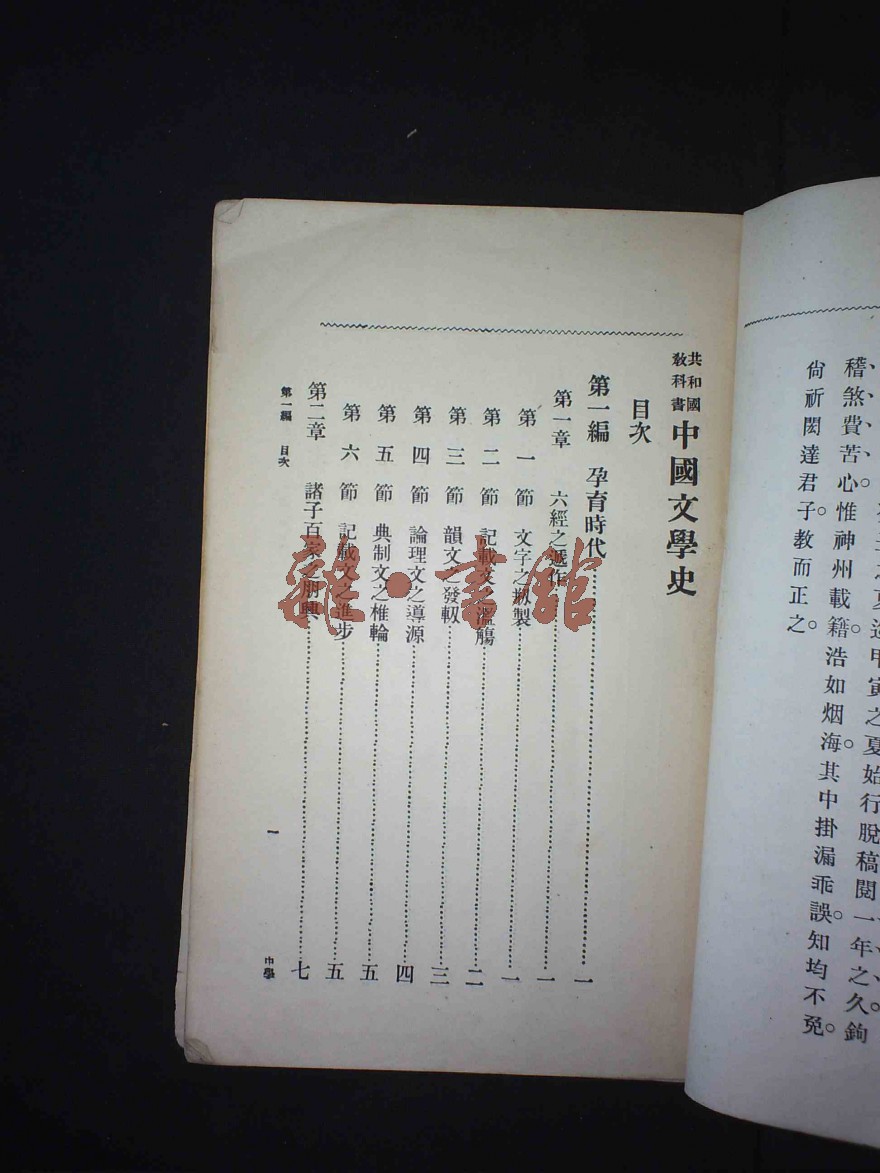 夏始行脫稿閱一年之久鉤
稽煞費苦心惟神州載籍浩如烟海。其中掛漏乖誤。知均不免。
尙祈閎達君子。敎而正之。
共和國
敎科書
中國文學史
目次
第一編 孕育時代……一
第一章 六經之遞作……一
第一節 文字之剏製……一
第二節 記載文之濫觴……二
第三節 韻文之發軔……三
第四節 論理文之導源……四
第五節 典制文之椎輪……五
第六節 記載文之進步……五
第二章 諸子百家之朋興……七
第一編 目次
一
中學
龍·書館